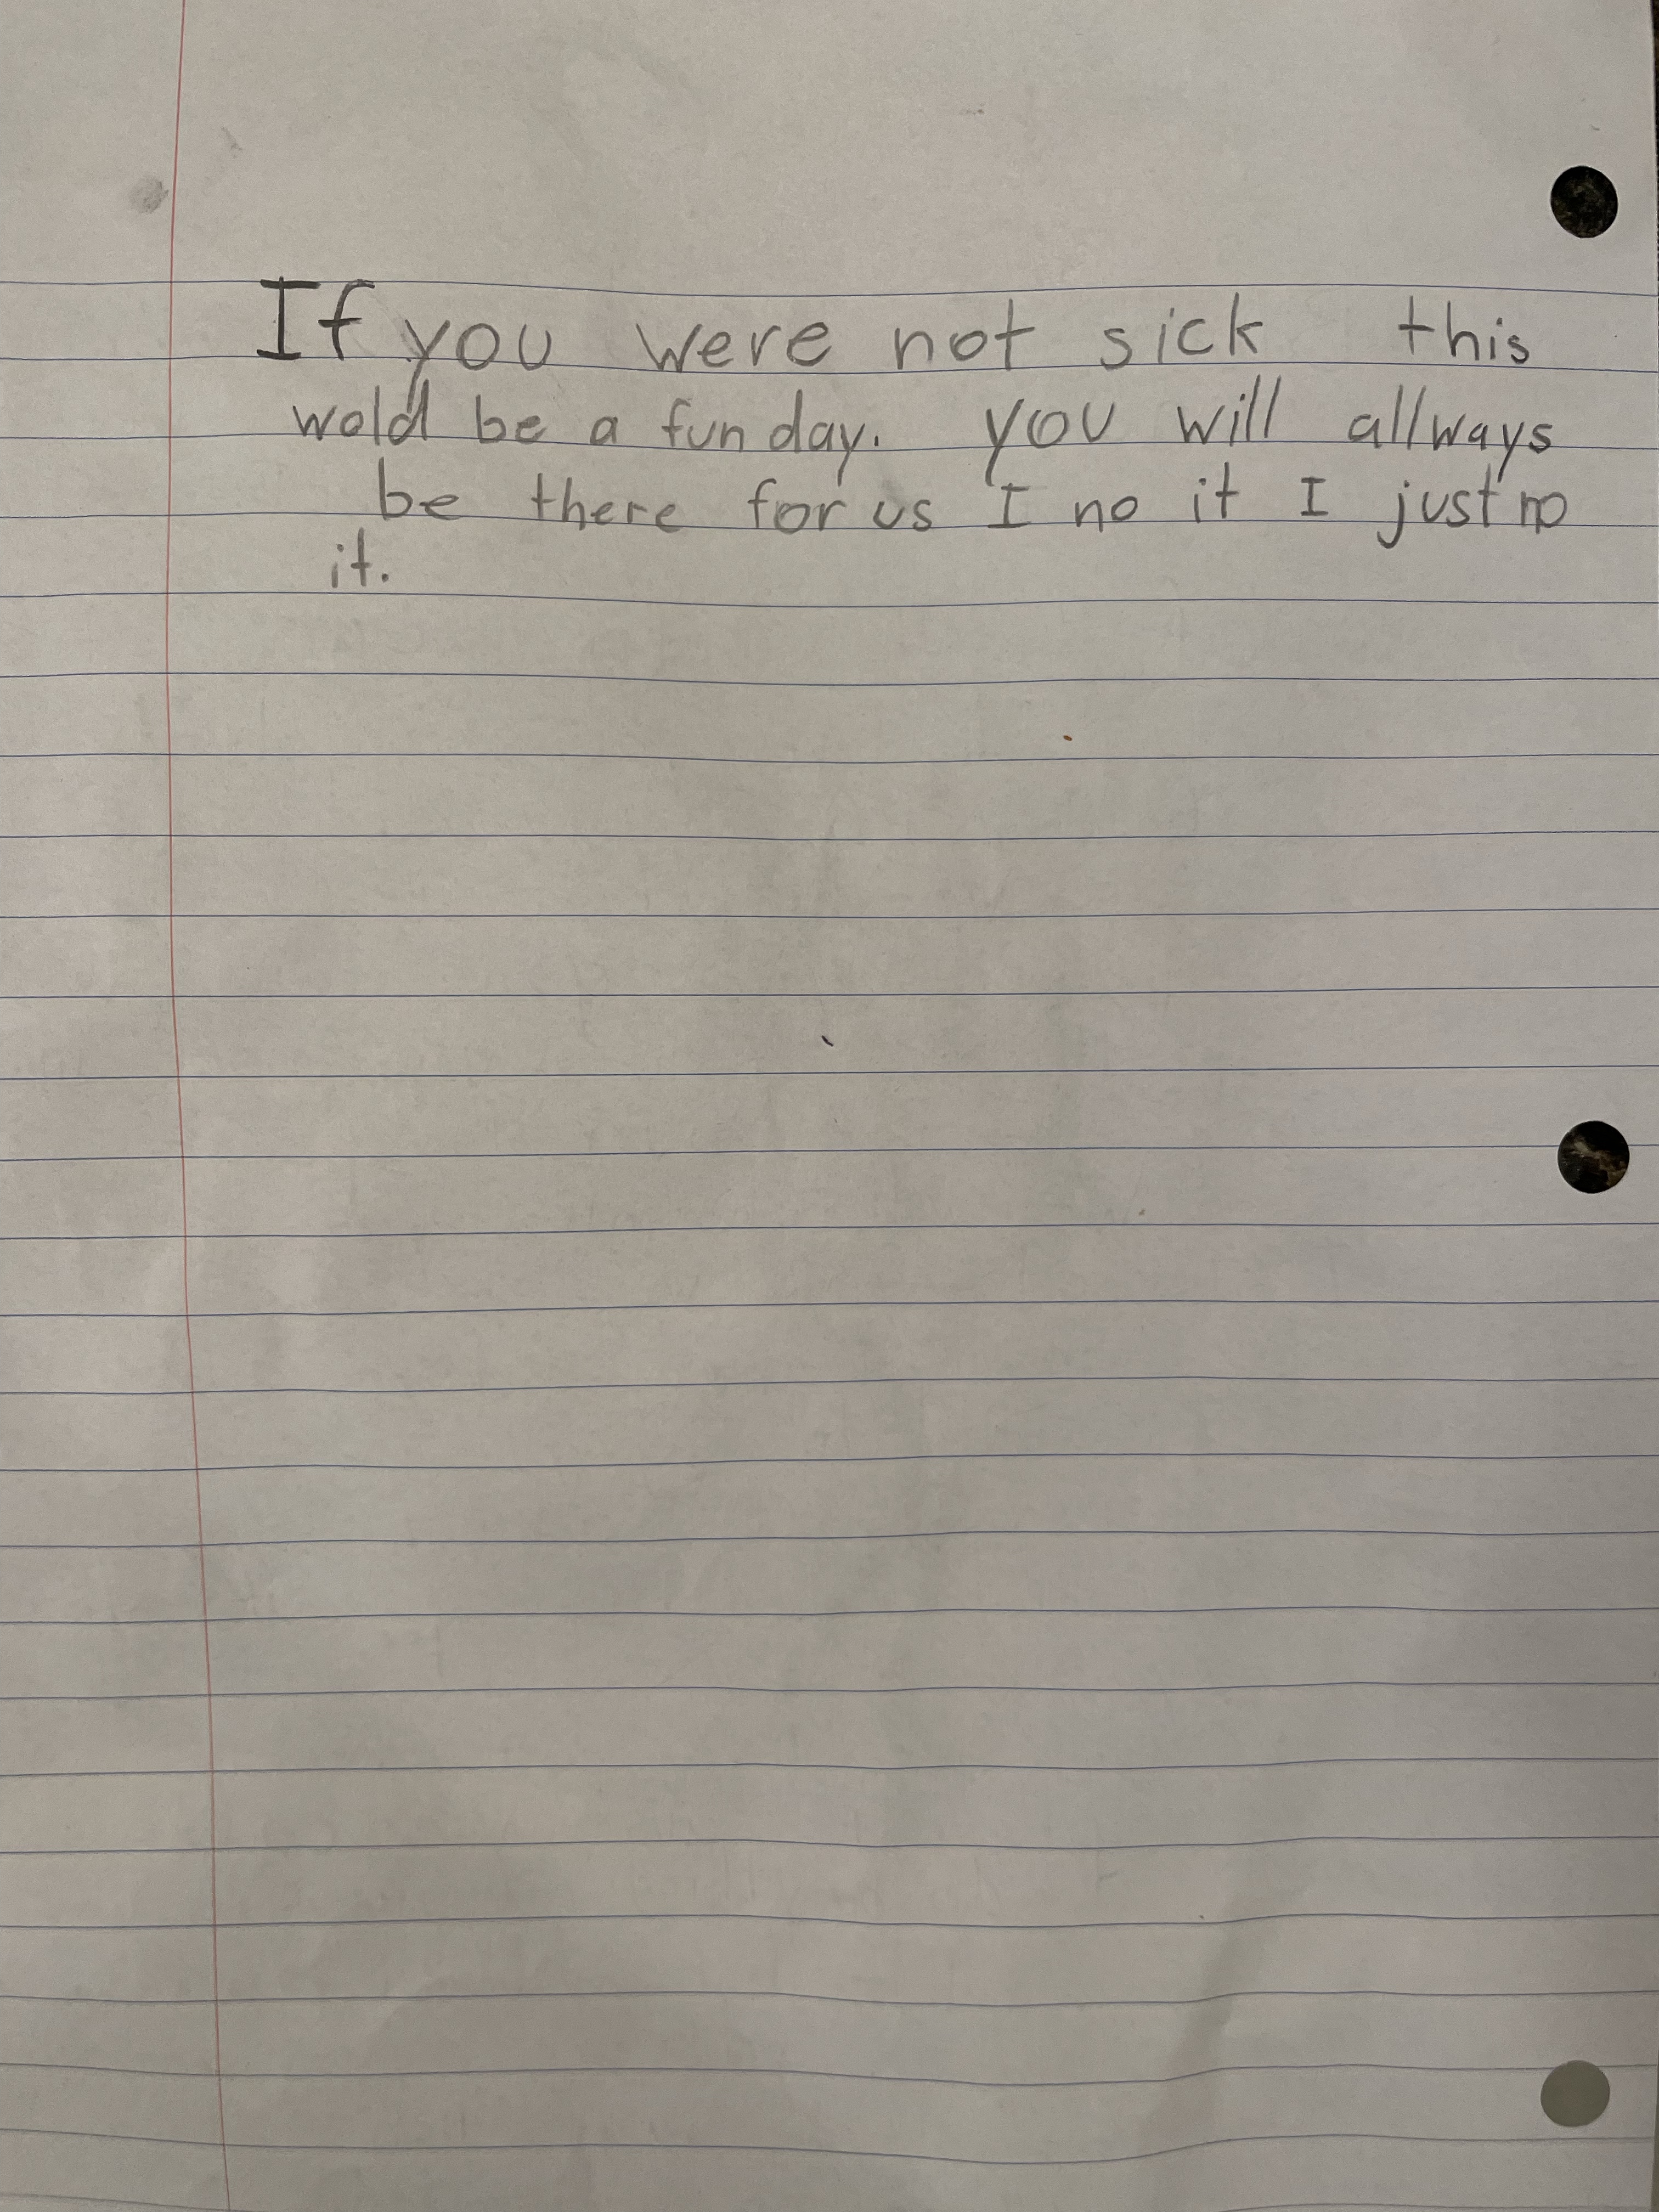 If you were not sick this
wold be a fun day. you will allways
be there for us I no it I just no
it.